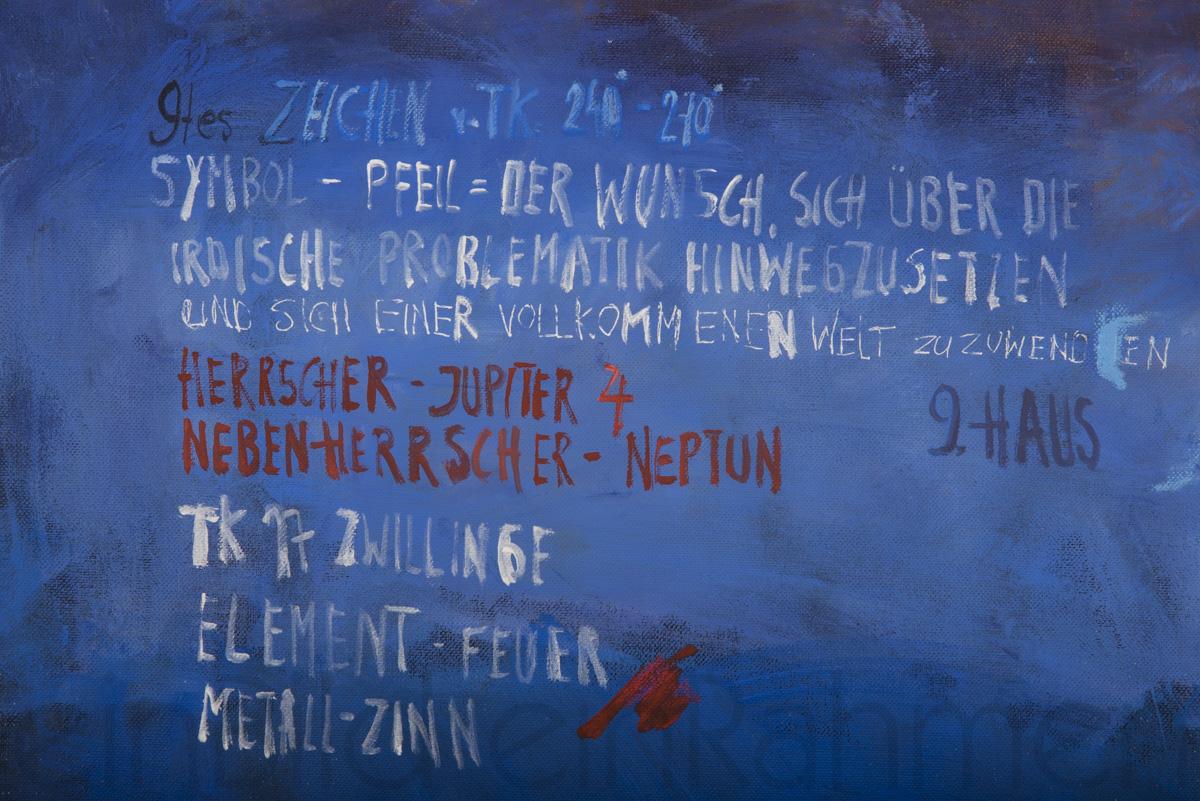 9tes ZEICHEN v. TK 240° - 270°
SYMBOL - PFEIL = DER WUNSCH, SICH ÜBER DIE
IRDISCHE PROBLEMATIK HINWEGZUSETZEN
UND SICH EINER VOLLKOMMENEN WELT ZUZUWENDEN
HERRSCHER - JUPITER ♃
NEBENHERRSCHER - NEPTUN
9. HAUS
TK ♐ ZWILLINGE
ELEMENT - FEUER
METALL - ZINN